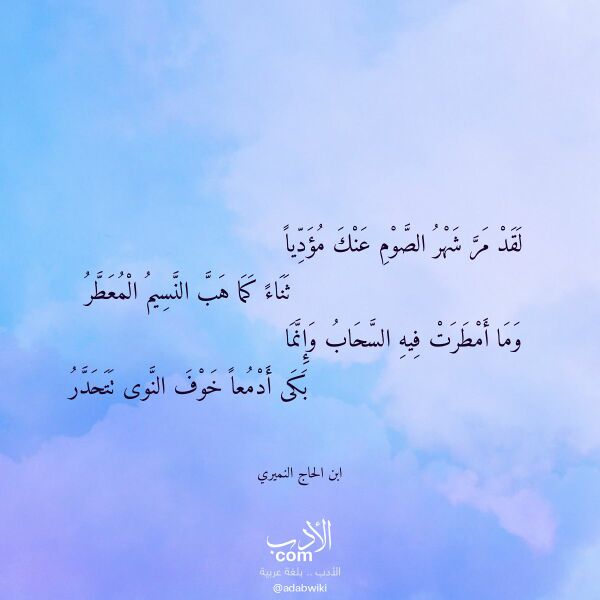 لَقَدْ مَرَّ شَهْرُ الصَّوْمِ عَنْكَ مُؤَدِّياً
ثَنَاءً كَمَا هَبَّ النَّسِيمُ الْمُعَطَّرُ
وَمَا أَمْطَرَتْ فِيهِ السَّحَابُ وَإِنَّمَا
بَكَى أَدْمُعاً خَوْفَ النَّوى تَتَحَدَّرُ
ابن الحاج النميري
الأدب
com
الأدب .. بلغة عربية
@adabwiki